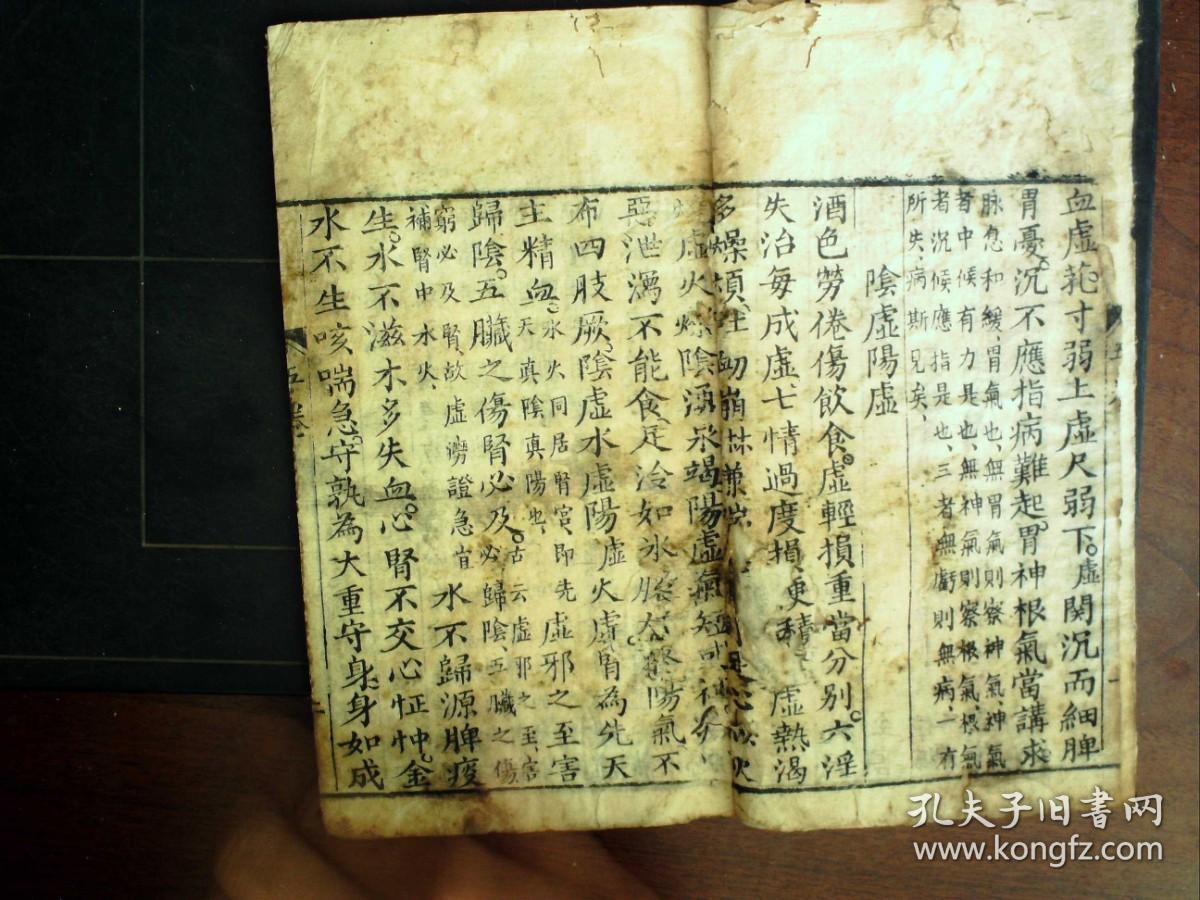 血虛芤寸弱上虛尺弱下虛關沉而細脾
胃憂沉不應指病難起胃神根氣當講求
脉急和緩胃氣也無胃氣則察神氣神氣
者中候有力是也無神氣則察根氣根氣
者沉候應指是也三者無虧則無病一有
所失病斯見矣
陰虛陽虛
酒色勞倦傷飲食虛輕損重當分別六淫
失治每成虛七情過度損更 虛熱渴
多燥煩 崩 兼
虛火爍陰湧泉竭陽虛氣短
惡泄瀉不能食足冷如冰 陽氣不
布四肢厥陰虛水虛陽虛火虛腎為先天
主精血天真陰真陽也水火同居腎宮即先虛邪之至害
歸陰五臟之傷腎必及古云虛邪之至害必歸陰五臟之傷
窮必及腎故虛癆證急宜補腎中水火水不歸源脾痰
生水不滋木多失血心腎不交心怔忡金
水不生咳喘急守孰為大重守身身如成
五卷
二
孔夫子旧书网
www.kongfz.com